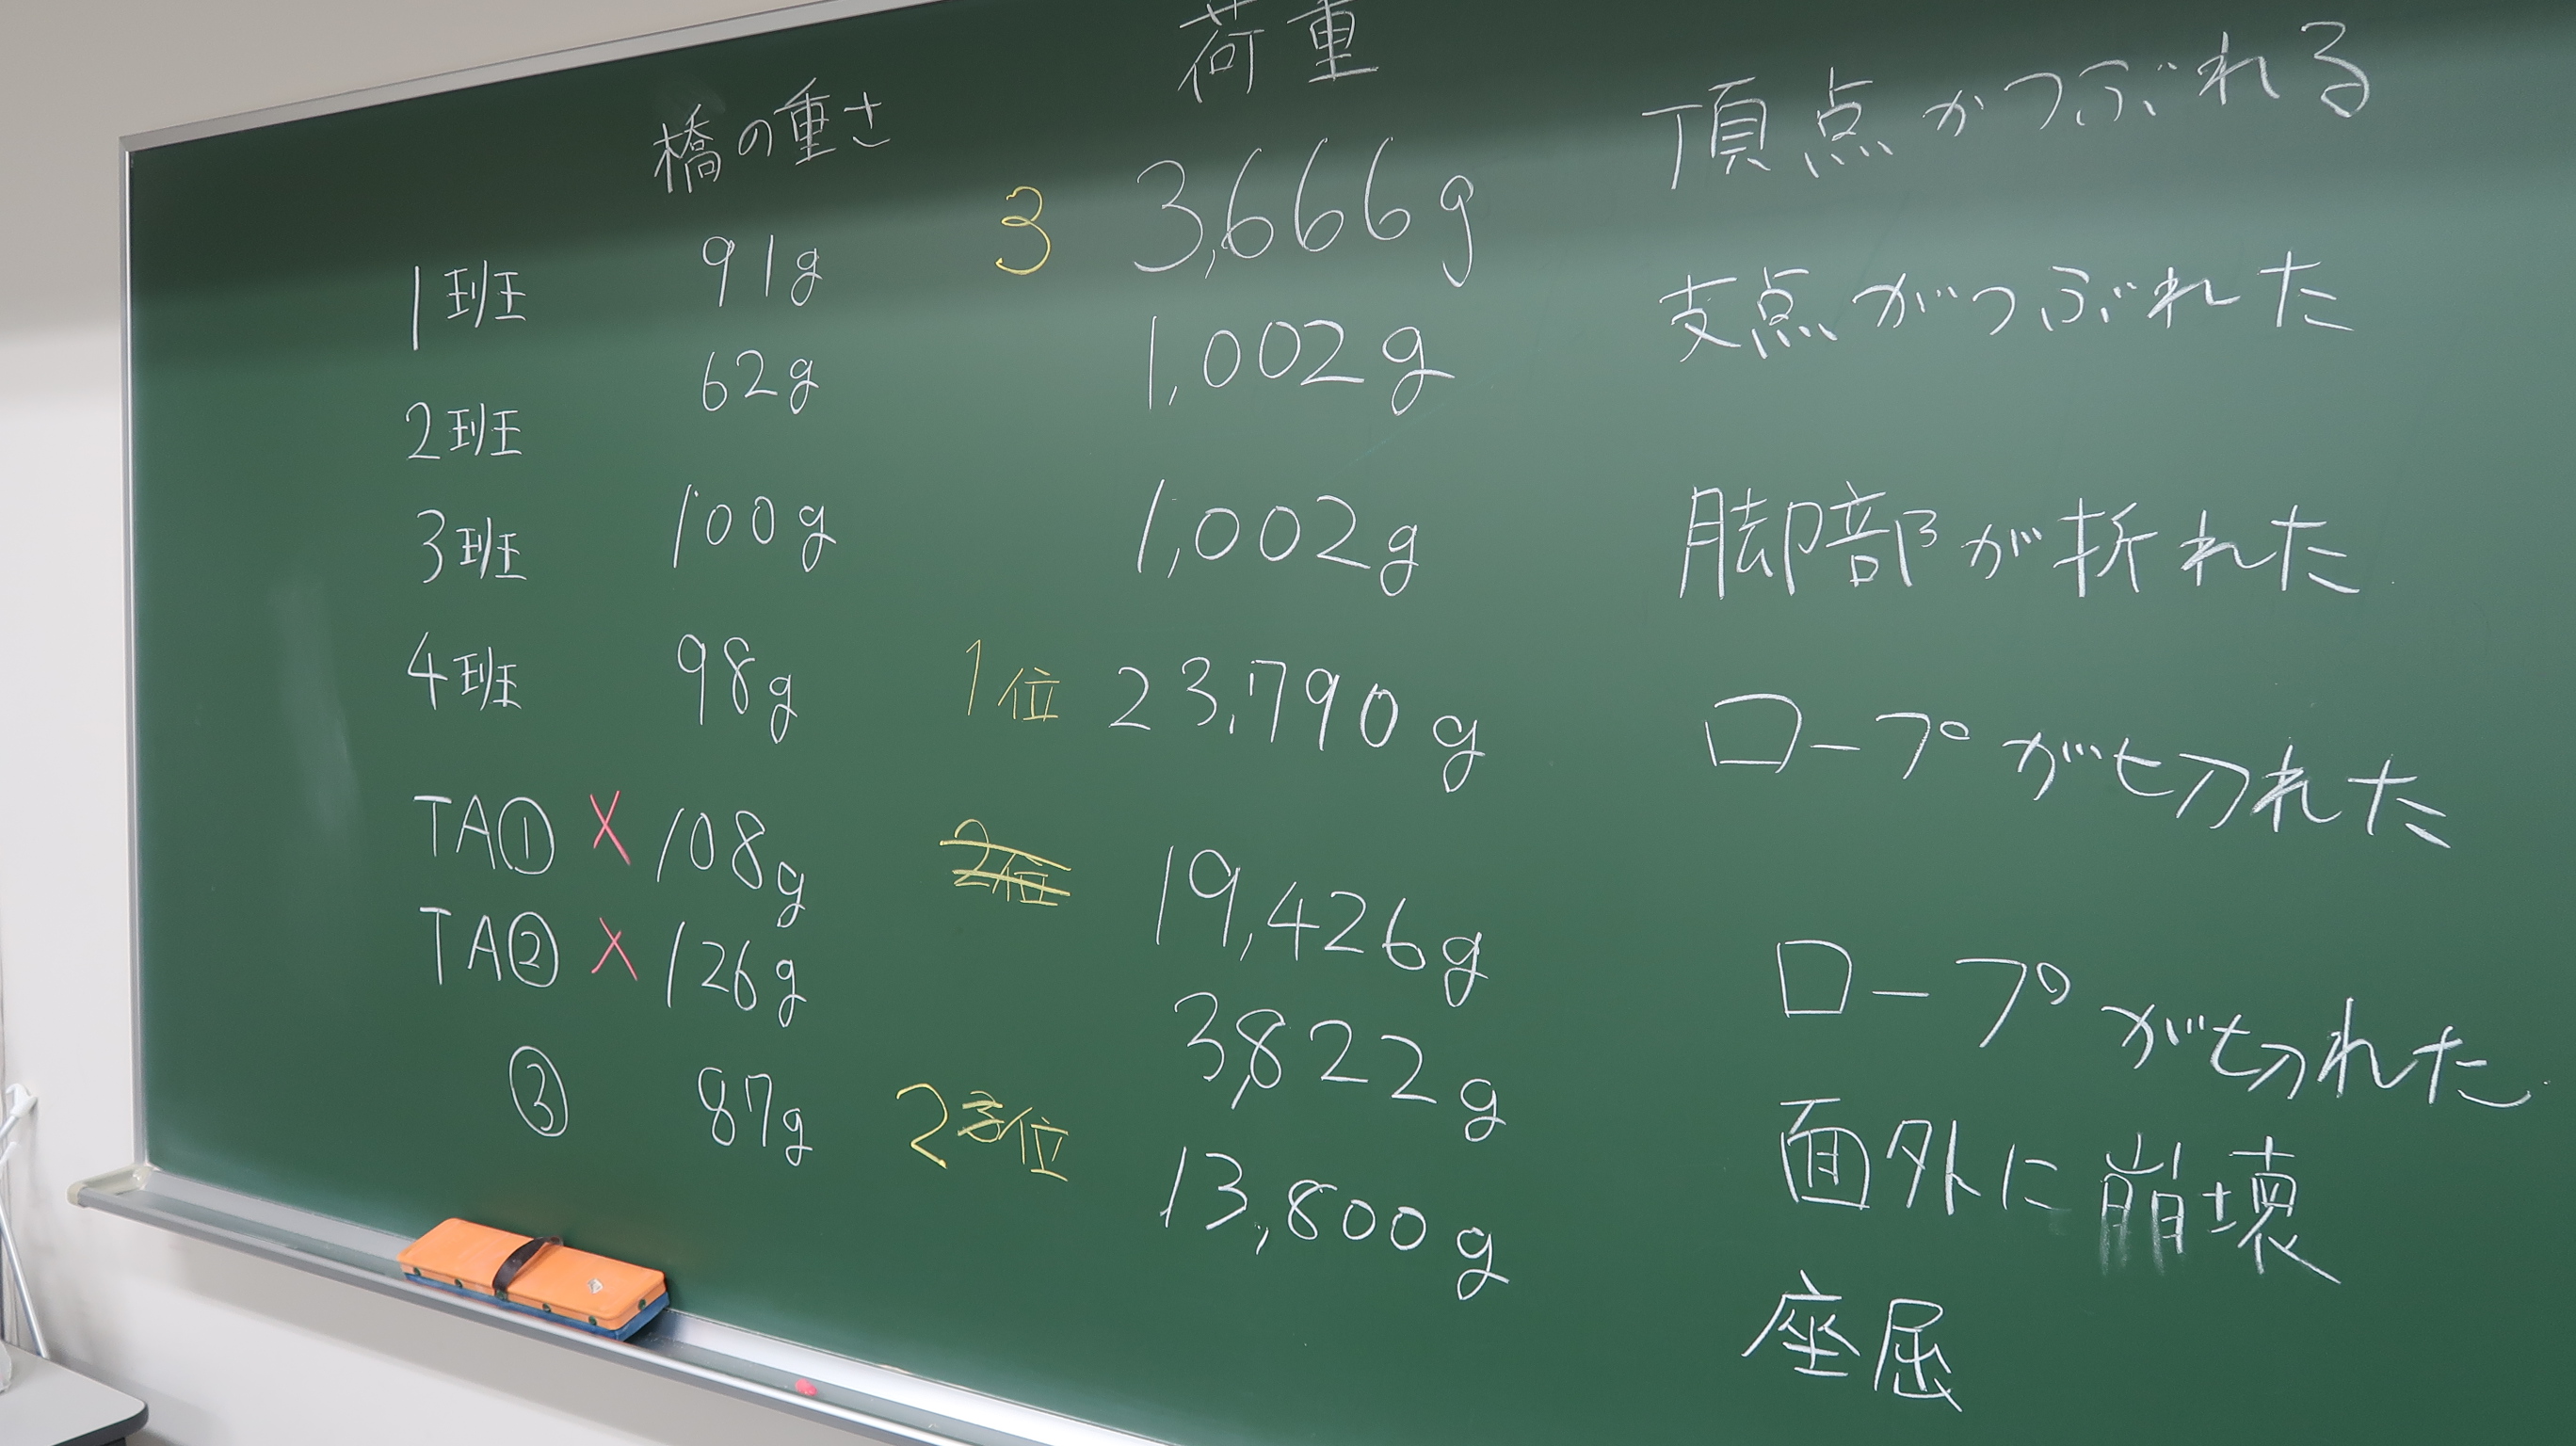 橋の重さ 荷重
1班 91g 3 3,666g 頂点がつぶれる
2班 62g 1,002g 支点がつぶれた
3班 100g 1,002g 脚部が折れた
4班 98g 1位 23,790g ロープが切れた
TA① X 108g 2位 19,426g ロープが切れた
TA② X 126g 3,822g 面外に崩壊
③ 87g 23位 13,800g 座屈